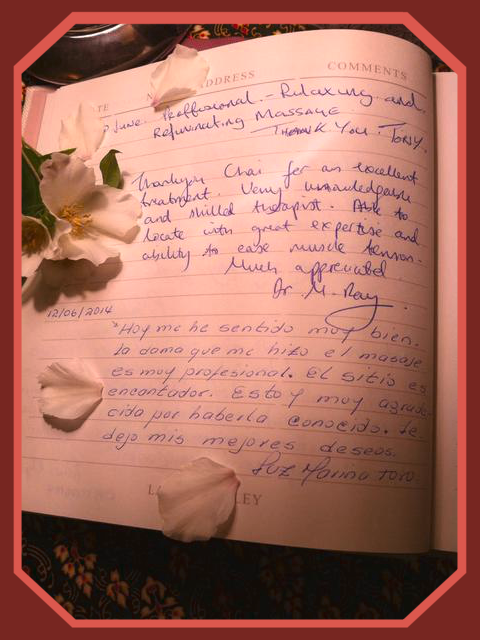 ADDRESS COMMENTS
June. Proffessional - Relaxing and
Rejuvinating Massage
Thank You. Tony.
Thankyou Chai for an excellent
treatment. Very knowledgable
and skilled therapist. Able to
locate with great expertise and
ability to ease muscle tension.
Much appreciated
Dr M. Ray
12/06/2014
"Hoy me he sentido muy bien.
La dama que me hizo el masaje
es muy profesional. El sitio es
encantador. Estoy muy agrade-
cida por haberla conocido. Le
dejo mis mejores deseos.
Luz Marina Toro